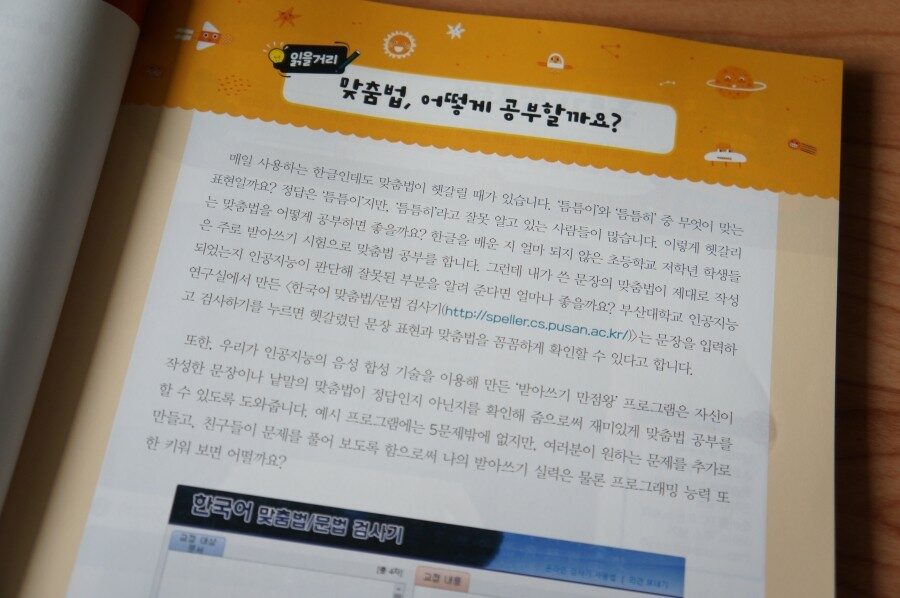 읽을거리
맞춤법, 어떻게 공부할까요?
매일 사용하는 한글인데도 맞춤법이 헷갈릴 때가 있습니다. '틈틈이'와 '틈틈히' 중 무엇이 맞는
표현일까요? 정답은 '틈틈이'지만, '틈틈히'라고 잘못 알고 있는 사람들이 많습니다. 이렇게 헷갈리
는 맞춤법을 어떻게 공부하면 좋을까요? 한글을 배운 지 얼마 되지 않은 초등학교 저학년 학생들
은 주로 받아쓰기 시험으로 맞춤법 공부를 합니다. 그런데 내가 쓴 문장의 맞춤법이 제대로 작성
되었는지 인공지능이 판단해 잘못된 부분을 알려 준다면 얼마나 좋을까요? 부산대학교 인공지능
연구실에서 만든 〈한국어 맞춤법/문법 검사기(http://speller.cs.pusan.ac.kr/)〉는 문장을 입력하
고 검사하기를 누르면 헷갈렸던 문장 표현과 맞춤법을 꼼꼼하게 확인할 수 있다고 합니다.
또한, 우리가 인공지능의 음성 합성 기술을 이용해 만든 '받아쓰기 만점왕' 프로그램은 자신이
작성한 문장이나 낱말의 맞춤법이 정답인지 아닌지를 확인해 줌으로써 재미있게 맞춤법 공부를
할 수 있도록 도와줍니다. 예시 프로그램에는 5문제밖에 없지만, 여러분이 원하는 문제를 추가로
만들고, 친구들이 문제를 풀어 보도록 함으로써 나의 받아쓰기 실력은 물론 프로그래밍 능력 또
한 키워 보면 어떨까요?
한국어 맞춤법/문법 검사기
온라인 검사기 사용법 | 의견 보내기
교정 대상
문서
[총 4자]
교정 내용